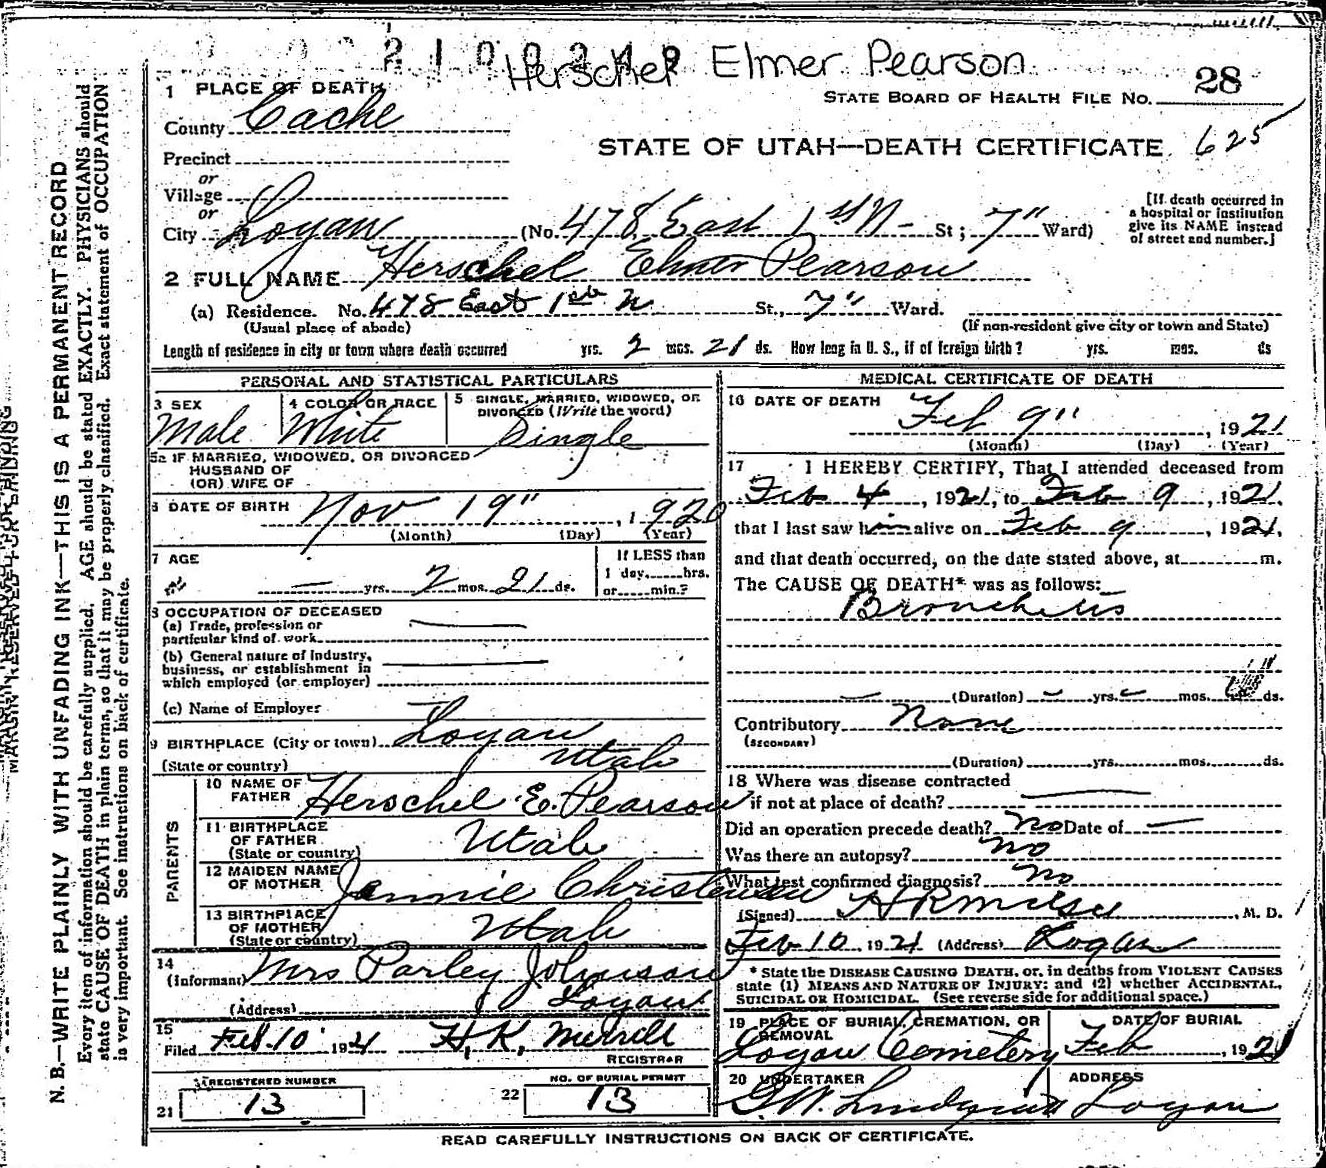 2100249
Herschel Elmer Pearson
28
STATE BOARD OF HEALTH FILE NO.
1 PLACE OF DEATH
County Cache
STATE OF UTAH—DEATH CERTIFICATE 625
Precinct
or
Village
or
City Logan (No. 478 East 1st N- St; 7" Ward)
[If death occurred in
a hospital or institution
give its NAME instead
of street and number.]
2 FULL NAME Herschel Elmer Pearson
(a) Residence. No. 478 East 1st N St., 7" Ward.
(Usual place of abode) (If non-resident give city or town and State)
Length of residence in city or town where death occurred yrs. 2 mos. 21 ds. How long in U. S., if of foreign birth? yrs. mos. ds
PERSONAL AND STATISTICAL PARTICULARS
3 SEX
Male
4 COLOR OR RACE
White
5 SINGLE, MARRIED, WIDOWED, OR
DIVORCED (Write the word)
Single
5a IF MARRIED, WIDOWED, OR DIVORCED
HUSBAND OF
(OR) WIFE OF
6 DATE OF BIRTH Nov 19" , 1920
(Month) (Day) (Year)
7 AGE
— yrs. 2 mos. 21 ds.
If LESS than
1 day, hrs.
or min.?
8 OCCUPATION OF DECEASED
(a) Trade, profession or
particular kind of work
(b) General nature of Industry,
business, or establishment in
which employed (or employer)
(c) Name of Employer
9 BIRTHPLACE (City or town) Logan
(State or country) Utah
PARENTS
10 NAME OF
FATHER Herschel E. Pearson
11 BIRTHPLACE
OF FATHER
(State or country) Utah
12 MAIDEN NAME
OF MOTHER Jennie Christensen
13 BIRTHPLACE
OF MOTHER
(State or country) Utah
14
(Informant) Mrs Parley Johnson
(Address) Logan
15
Filed Feb. 10 1921 H. K. Merrill
REGISTRAR
REGISTERED NUMBER
21 13
NO. OF BURIAL PERMIT
22 13
MEDICAL CERTIFICATE OF DEATH
16 DATE OF DEATH Feb 9" , 1921
(Month) (Day) (Year)
17 I HEREBY CERTIFY, That I attended deceased from
Feb 4 , 1921, to Feb 9 , 1921
that I last saw him alive on Feb 9 , 1921,
and that death occurred, on the date stated above, at m.
The CAUSE OF DEATH* was as follows:
Bronchitis
— (Duration) — yrs. — mos. ds.
Contributory None
(SECONDARY)
(Duration) yrs. mos. ds.
18 Where was disease contracted
if not at place of death?
Did an operation precede death? No Date of —
Was there an autopsy? No
What test confirmed diagnosis? No
(Signed) , M. D.
Feb 10 1921 (Address) Logan
* State the DISEASE CAUSING DEATH, or, in deaths from VIOLENT CAUSES
state (1) MEANS AND NATURE OF INJURY; and (2) whether ACCIDENTAL,
SUICIDAL OR HOMICIDAL. (See reverse side for additional space.)
19 PLACE OF BURIAL, CREMATION, OR
REMOVAL
Logan Cemetery
DATE OF BURIAL
Feb , 1921
20 UNDERTAKER
G.W. Lindquist
ADDRESS
Logan
READ CAREFULLY INSTRUCTIONS ON BACK OF CERTIFICATE.
MARGIN RESERVED FOR BINDING
N. B.—WRITE PLAINLY WITH UNFADING INK—THIS IS A PERMANENT RECORD
Every item of information should be carefully supplied. AGE should be stated EXACTLY. PHYSICIANS should
state CAUSE OF DEATH in plain terms, so that it may be properly classified. Exact statement of OCCUPATION
is very important. See instructions on back of certificate.